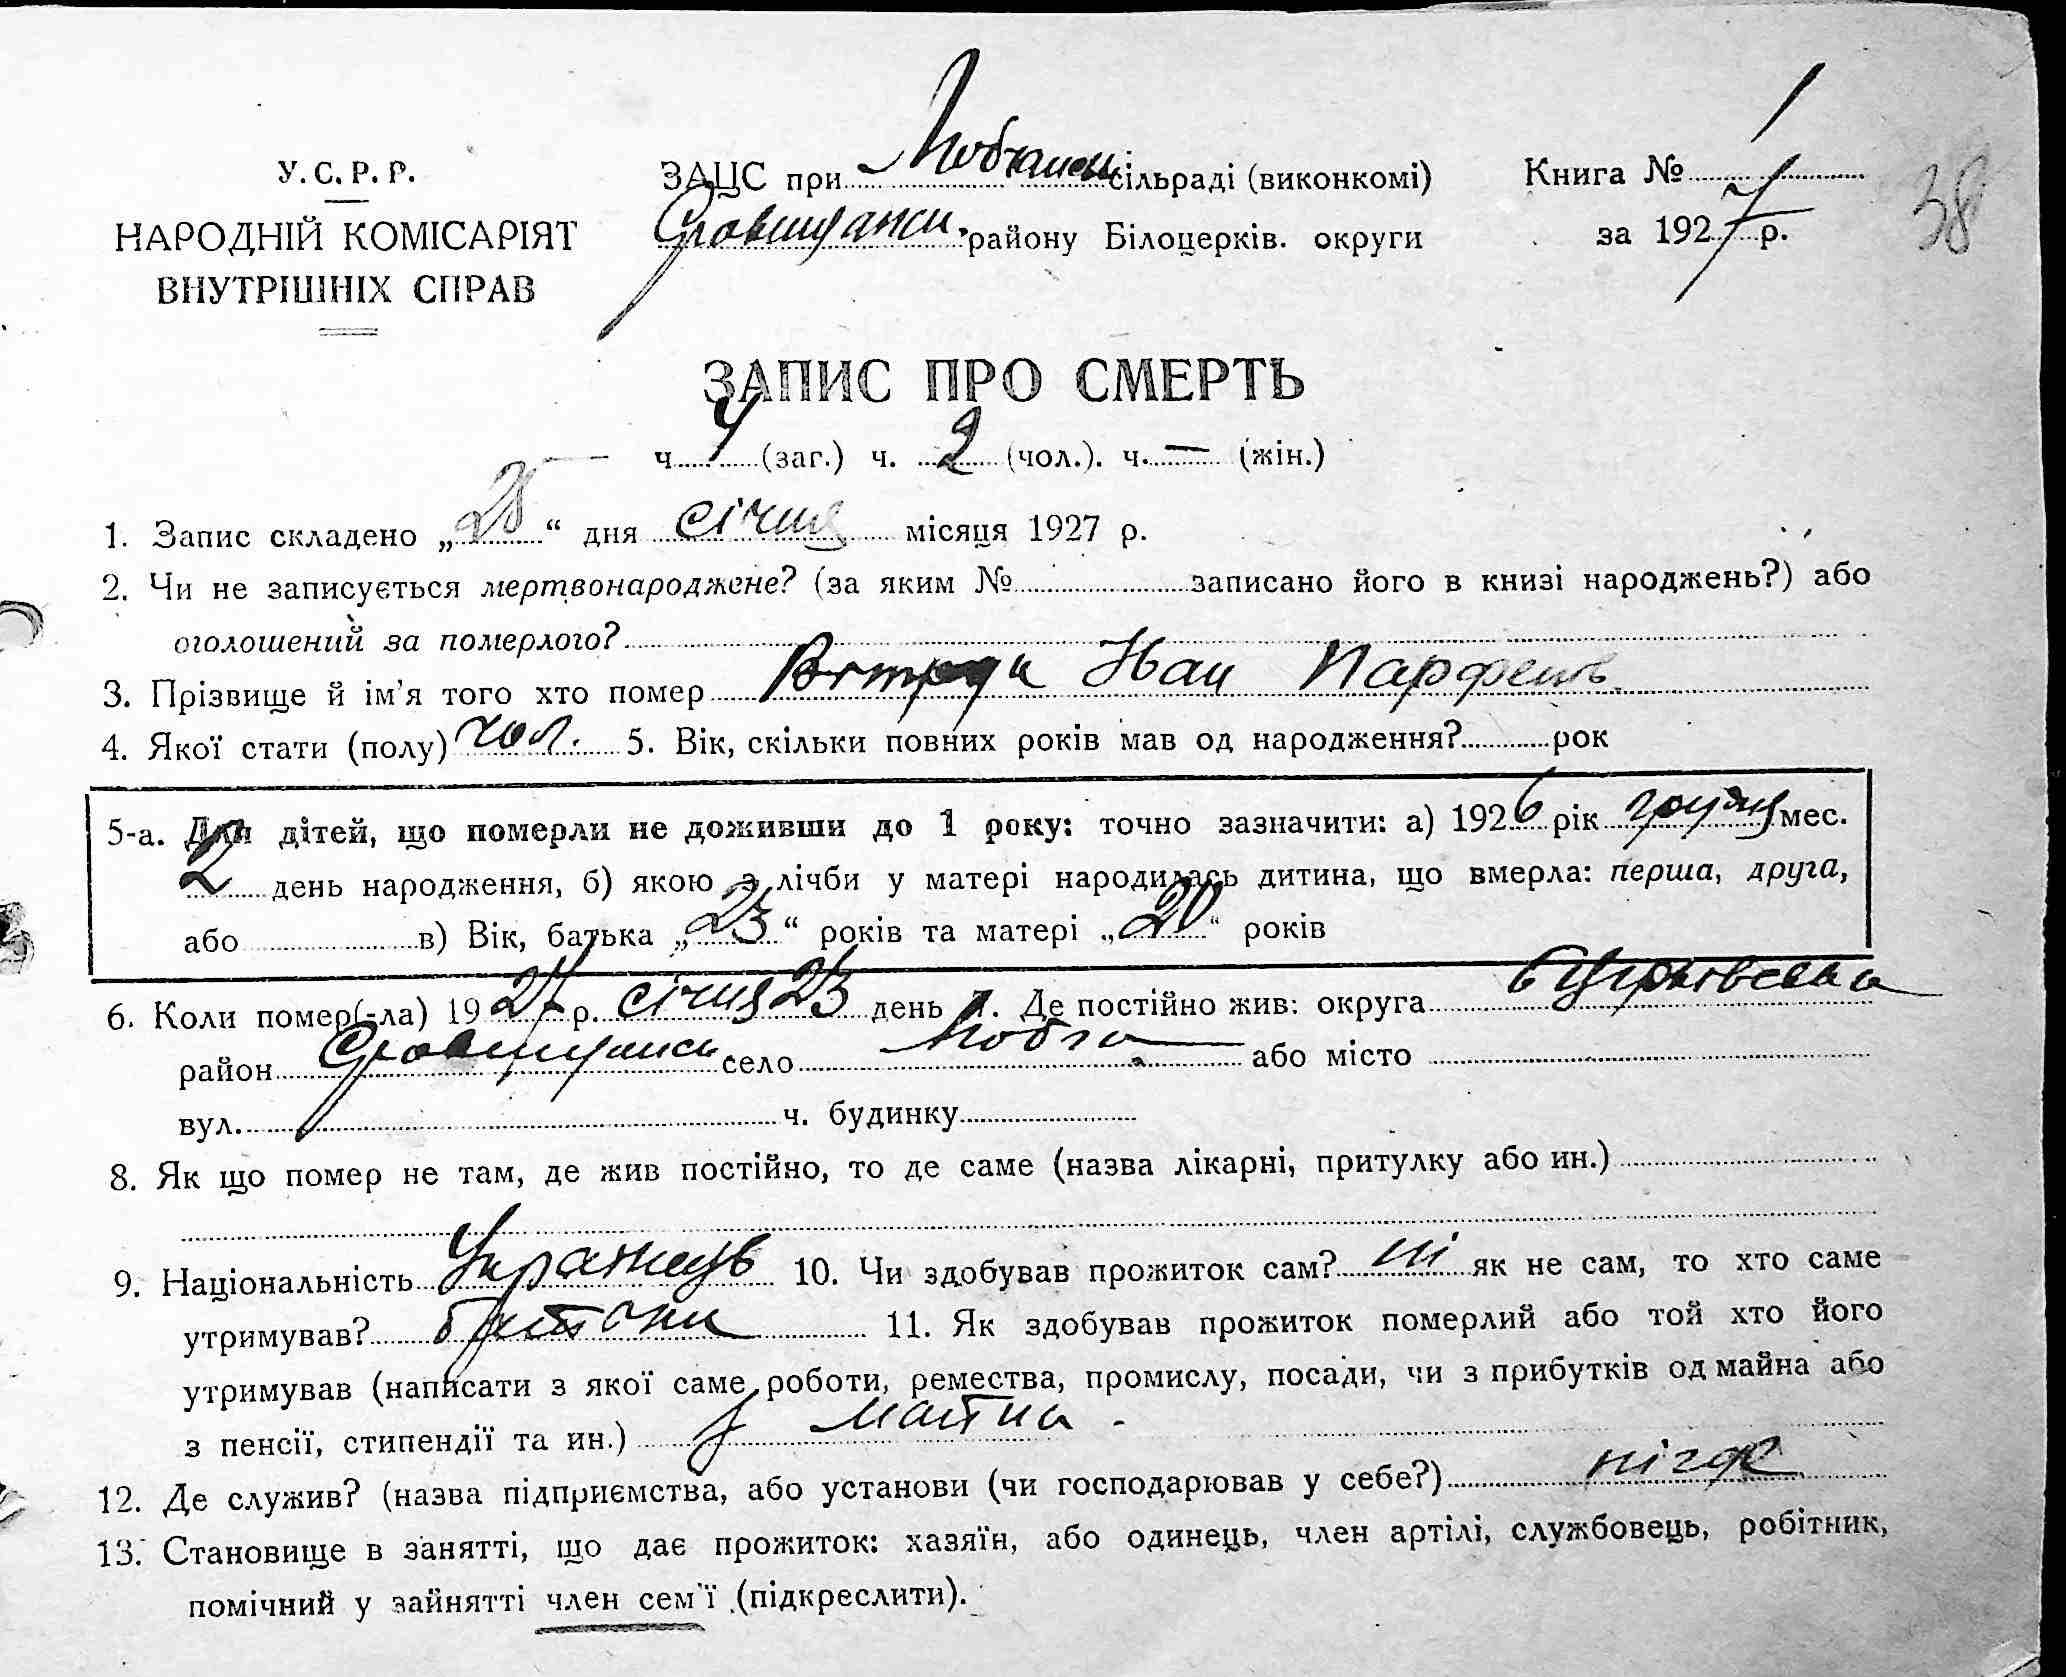 У.С.Р.Р.
НАРОДНІЙ КОМІСАРІЯТ
ВНУТРІШНІХ СПРАВ
ЗАЦС при сільраді (виконкомі)
району Білоцерків. округи
Книга № 1
за 1927 р.
38
ЗАПИС ПРО СМЕРТЬ
ч 4 (заг.) ч. 2 (чол.). ч. — (жін.)
1. Запис складено „25“ дня січня місяця 1927 р.
2. Чи не записується мертвонароджене? (за яким № записано його в книзі народжень?) або
оголошений за померлого?
3. Прізвище й ім'я того хто помер Іван Парфен.
4. Якої стати (полу) чол. 5. Вік, скільки повних років мав од народження? рок
5-а. Для дітей, що померли не доживши до 1 року: точно зазначити: а) 1926 рік грудня мес.
2 день народження, б) якою з лічби у матері народилась дитина, що вмерла: перша, друга,
або в) Вік, батька „23“ років та матері „20“ років
6. Коли помер(-ла) 1927 р. січня 23 день 7. Де постійно жив: округа Бцерківська
район село або місто
вул. ч. будинку
8. Як що помер не там, де жив постійно, то де саме (назва лікарні, притулку або ин.)
9. Національність 10. Чи здобував прожиток сам? ні як не сам, то хто саме
утримував? батьки 11. Як здобував прожиток померлий або той хто його
утримував (написати з якої саме роботи, ремества, промислу, посади, чи з прибутків од майна або
з пенсії, стипендії та ин.) з майна
12. Де служив? (назва підприємства, або установи (чи господарював у себе?) нігде
13. Становище в занятті, що дає прожиток: хазяїн, або одинець, член артілі, службовець, робітник,
помічний у зайнятті член сем'ї (підкреслити).